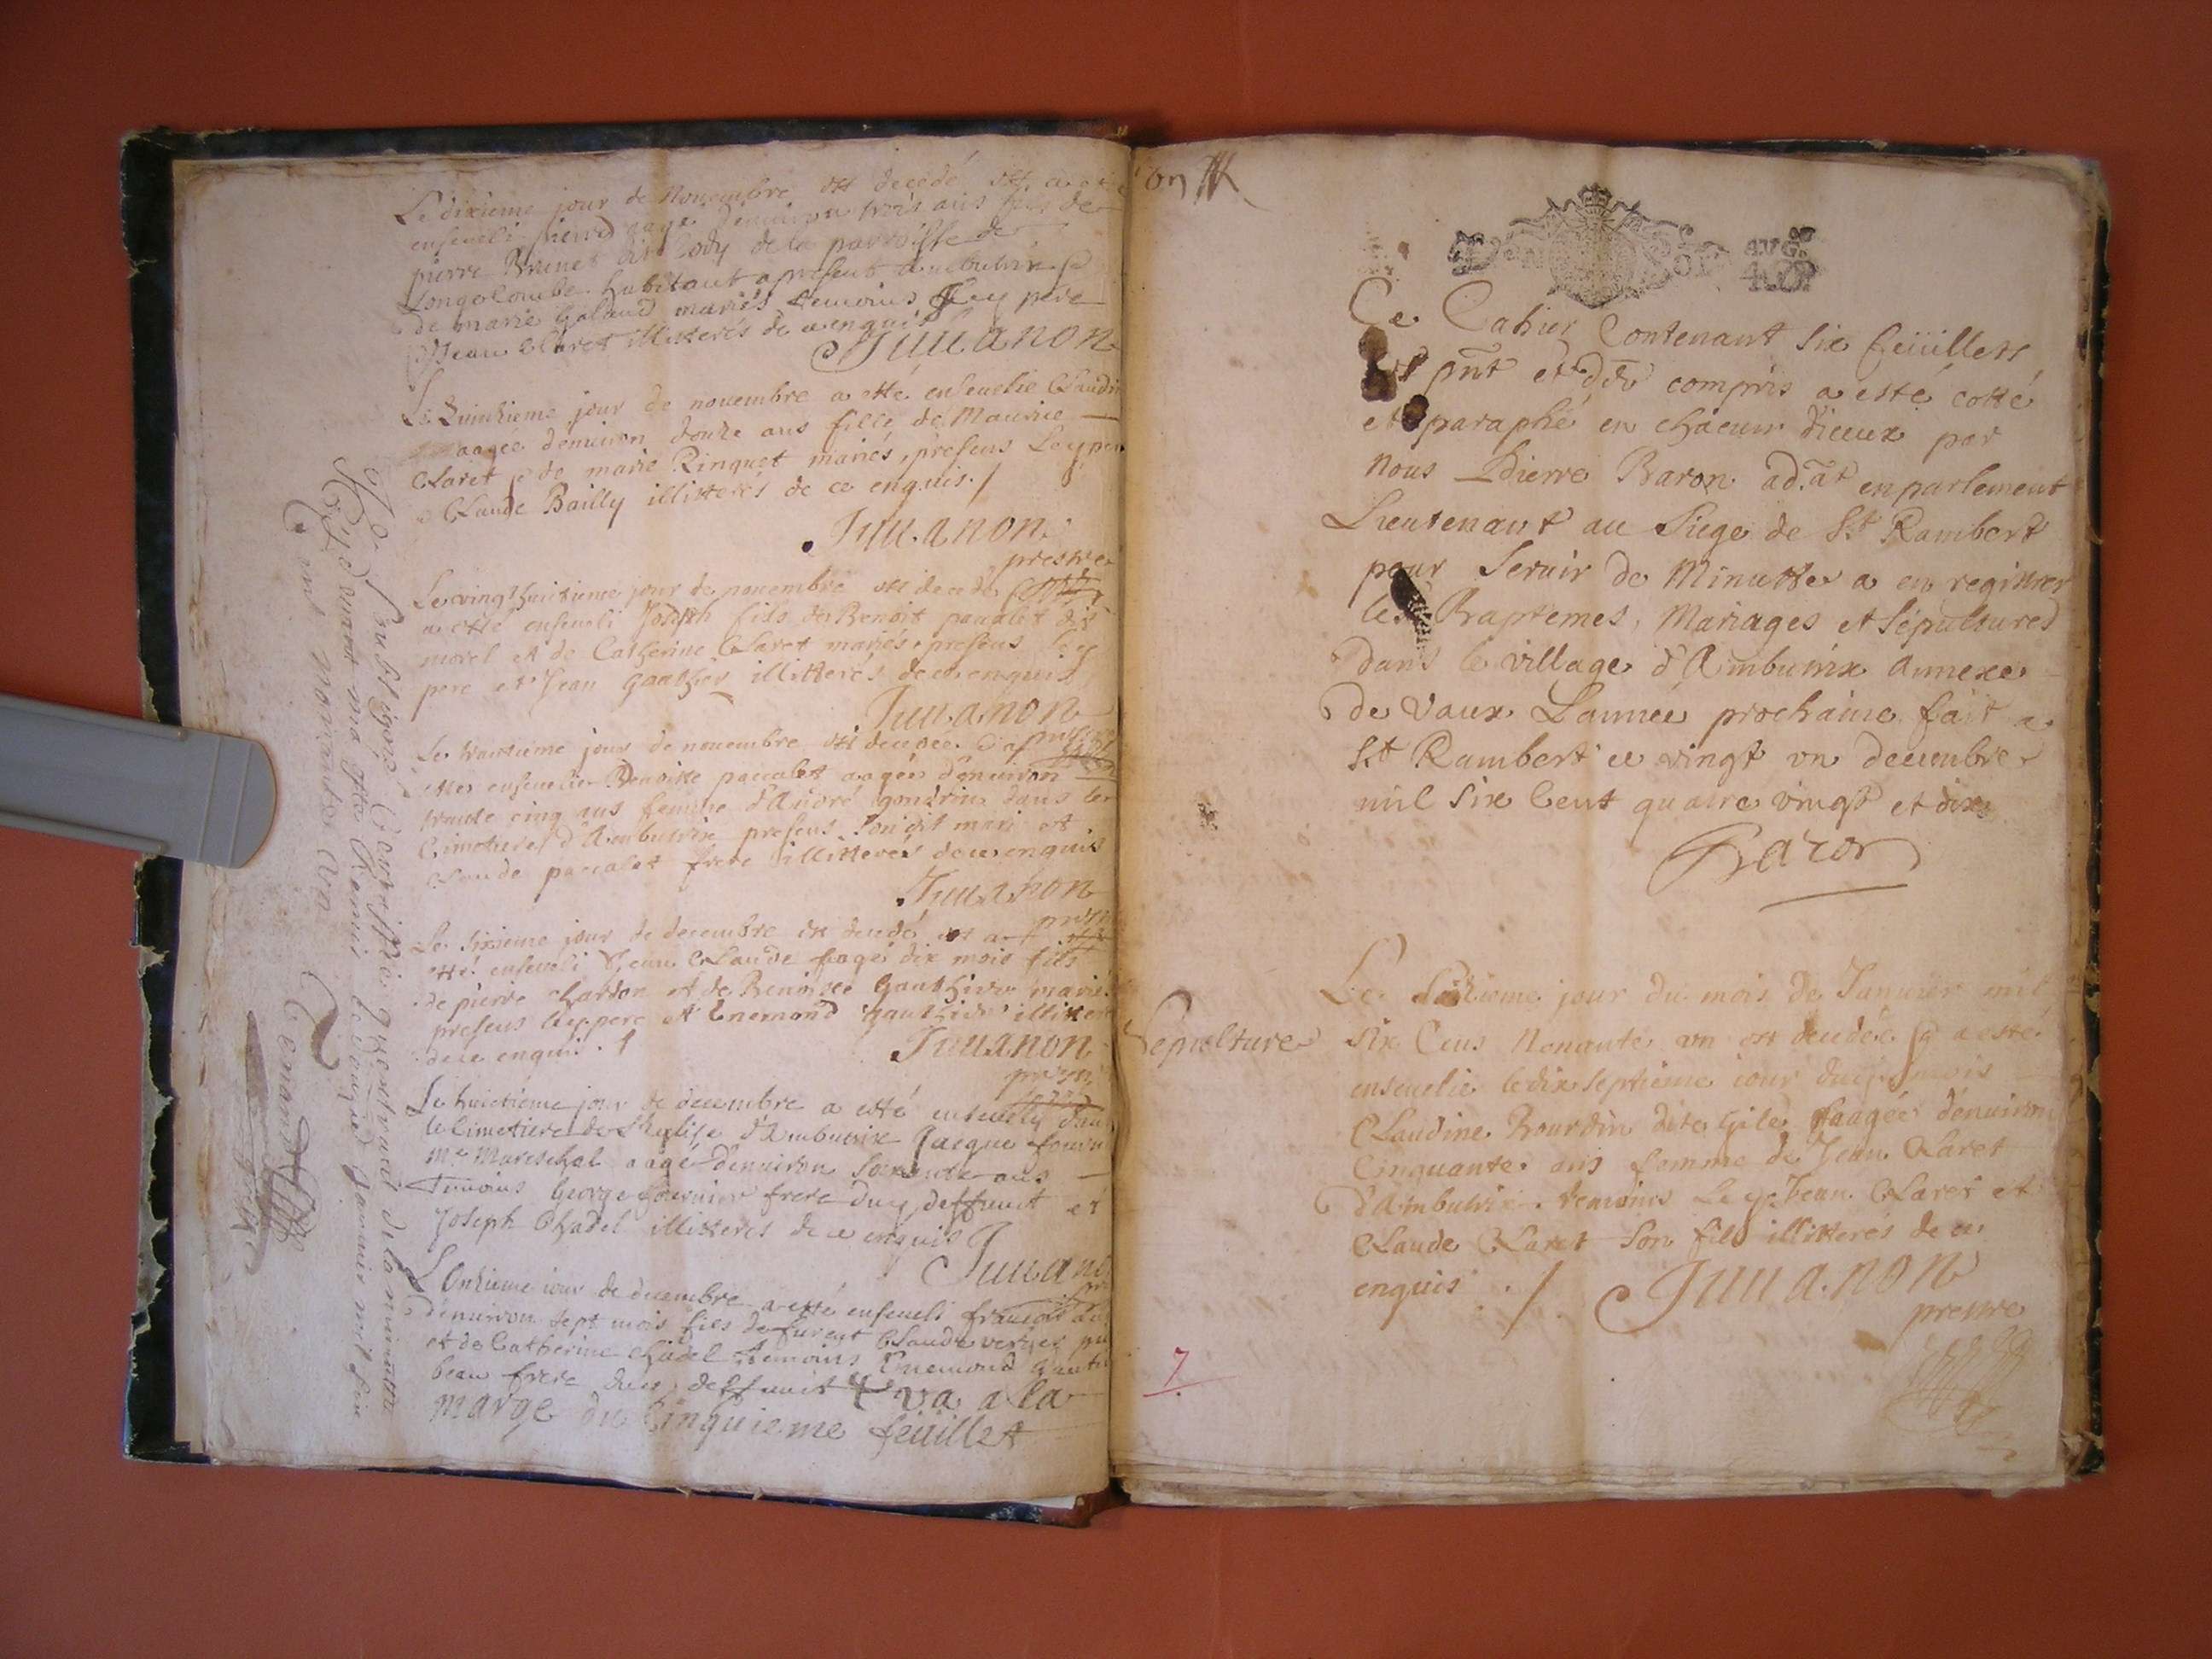 Le dixieme jour de Nouembre est decedé et a esté
enseueli pierre aagé denuiron trois ans fils de
pierre Brunet dit Lody de la parroisse de
Longecombe habitant a present a Ambutrix et
de marie Galand mariés temoins Ley pere
et Jean Claret illitterés de ce enquis
Juuanon
Le quinzieme jour de nouembre a esté enseuelie Claudine
aagee denuiron douze ans fille de Maurice
Claret et de marie Rinquet mariés, presens Ley pere
et Claude Bailly illitterés de ce enquis./
Juuanon
prestre
Le vingt huitieme jour de nouembre est decedé et
a esté enseueli Joseph fils de Benoit pacalet dit
morel et de Catherine Claret mariés, presens Ley
pere et Jean Gauthier illitterés de ce enquis
Juuanon
Le trantieme jour de nouembre est decedée et a
estée enseuelie Benoite paccalet aagée denuiron
trante cinq ans femme d'André gondrin dans le
Cimetiere d'Ambutrix presens son dit mari et
Claude paccalet frere illitterés de ce enquis
Juuanon
prestre
Le sixieme jour de decembre est decedé et a
esté enseueli Jean Claude aagé dix mois fils
de pierre Chardon et de Benoitee Gauthier mariés
presens Ley pere et Enemond Gauthier illitteres
de ce enquis . /
Juuanon
prestre
Le huictieme jour de decembre a esté enseuely dans
le Cimetiere de l'Eglise d'Ambutrix Jacque fournier
Mre Mareschal aagé denuiron soixante ans
Temoins George fournier frere duy deffunct et
Joseph Chadel illitteres de ce enquis
Juuanon
L'Onzieme iour de decembre a esté enseueli francois
denuiron sept mois fils de furent Claude verger
et de Catherine Chadel temoins Enemond Gautier
beau frere duy deffunct va a la
marge du Cinquieme feüillet
Je Soubsigné Certiffie questrait de la minutte
a esté deuant moy Remis le Janvier mil six
Cent nonante Un
Tenand
on
AUG.
Ce Cahier Contenant six feüillets
le pnt et der compris a esté cotté
et paraphé en chacun diceux par
nous Pierre Baron adat en parlement
Lieutenant au Siege de St Rambert
pour Seruir de Minutte a en registrer
les Baptemes, Mariages et Sepultures
dans le village d'Ambutrix annexe
de Vaux Lannée prochaine fait a
St Rambert ce vingt vn decembre
mil six Cent quatre vingt et dix
Baron
Sepulture
Le Seizieme jour du mois de Januier mil
six Cens Nonante vn est decedée et a esté
enseuelie le dix septieme iour dudit mois
Claudine Bourdin dite Gile aagée denuiron
Cinquante ans femme de Jean Claret
d'Ambutrix. temoins Ley Jean Claret et
Claude Claret son fils illitterés de ce
enquis ./
Juuanon
prestre
7